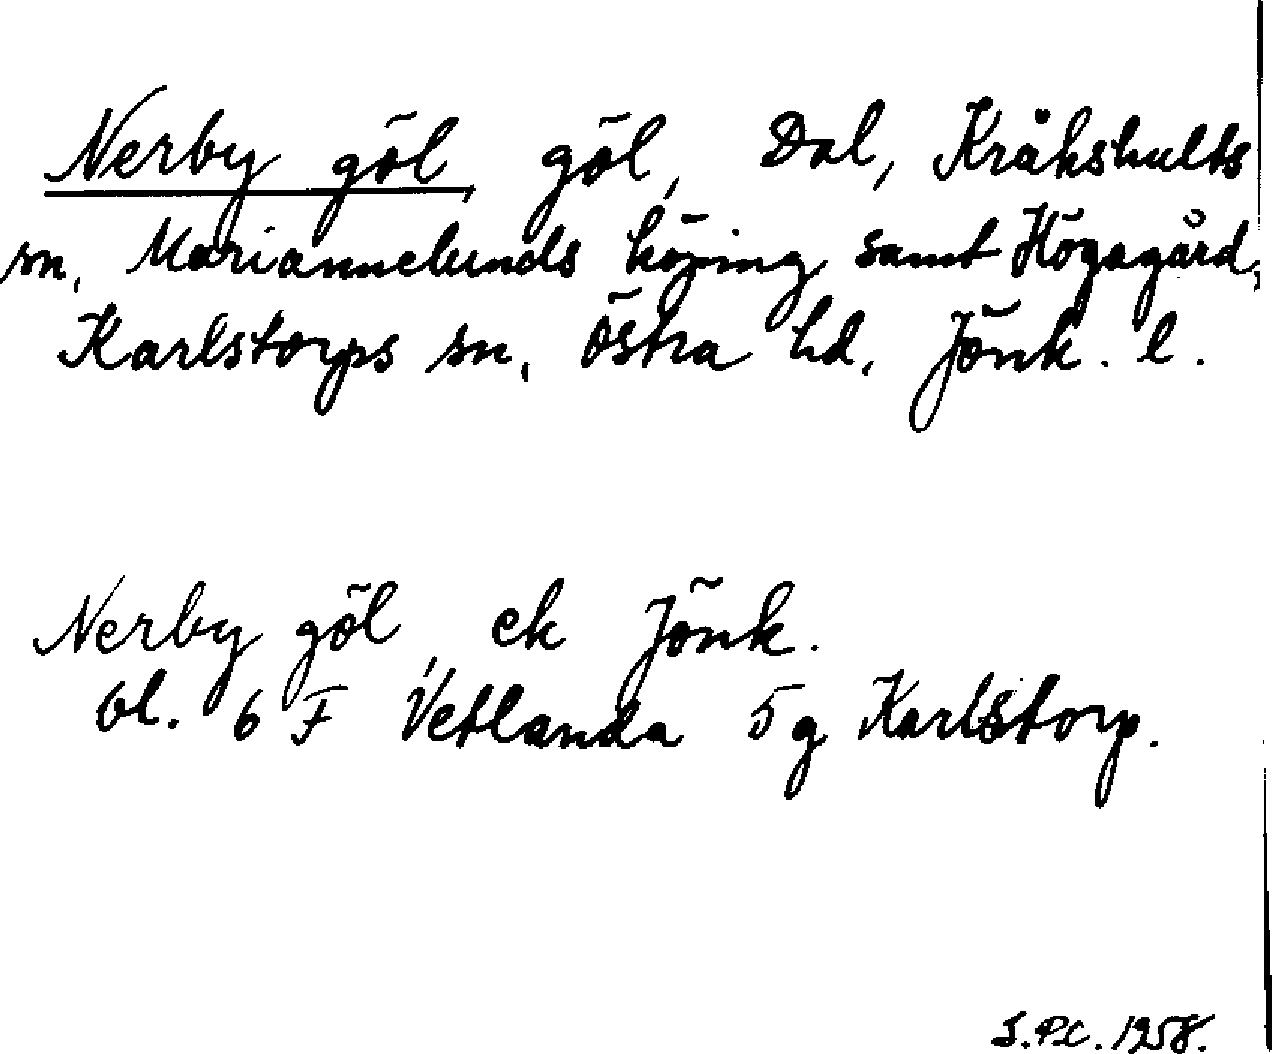 Nerby göl, göl, Dal, Kråkshults
sn, Mariannelunds köping samt Högagård,
Karlstorps sn, Östra hd, Jönk. l.
Nerby göl, ek Jönk.
bl. 6 F Vetlanda 5 g Karlstorp.
S.P.C. 1958.